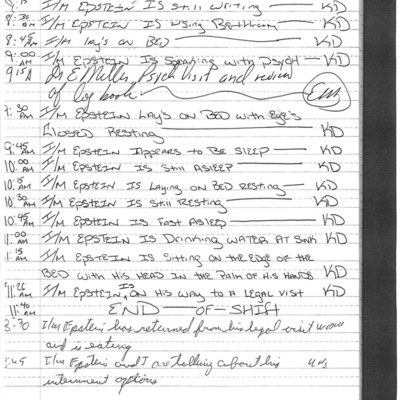 8:15 I/M EPSTEIN IS Still writing — KD
8:30 AM I/M EPSTEIN IS Using Bathroom — KD
8:45 AM I/M lay's on BED — KD
9:00 AM I/M EPSTEIN IS Speaking with PSYCH — KD
9:15A Dr E Miller, Psych Visit and review
of log book
9:30 AM I/M EPSTEIN LAY'S ON BED with Eye's
Closed Resting — KD
9:45 AM I/M EPSTEIN Appears to BE SlEEP — KD
10:00 AM I/M EPSTEIN IS Still ASlEEP — KD
10:15 AM I/M EPSTEIN IS Laying on BED RESting — KD
10:30 AM I/M EPSTEIN IS Still RESting — KD
10:45 AM I/M EPSTEIN IS FAST ASlEEP — KD
11:00 AM I/M EPSTEIN IS Drinking WATER AT Sink KD
1:15 AM I/M EPSTEIN IS Sitting on the EDGE of the
BED with His HEAD IN the PAlm of His HANDS KD
11:26 AM I/M EPSTEIN, IS ON His WAY to A LEGAl Visit KD
11:40 AM END — OF - SHIFT
3:30 I/m Epstein has returned from his legal visit
and is eating
:45 I/m Epstein and I are talking about his
internment options